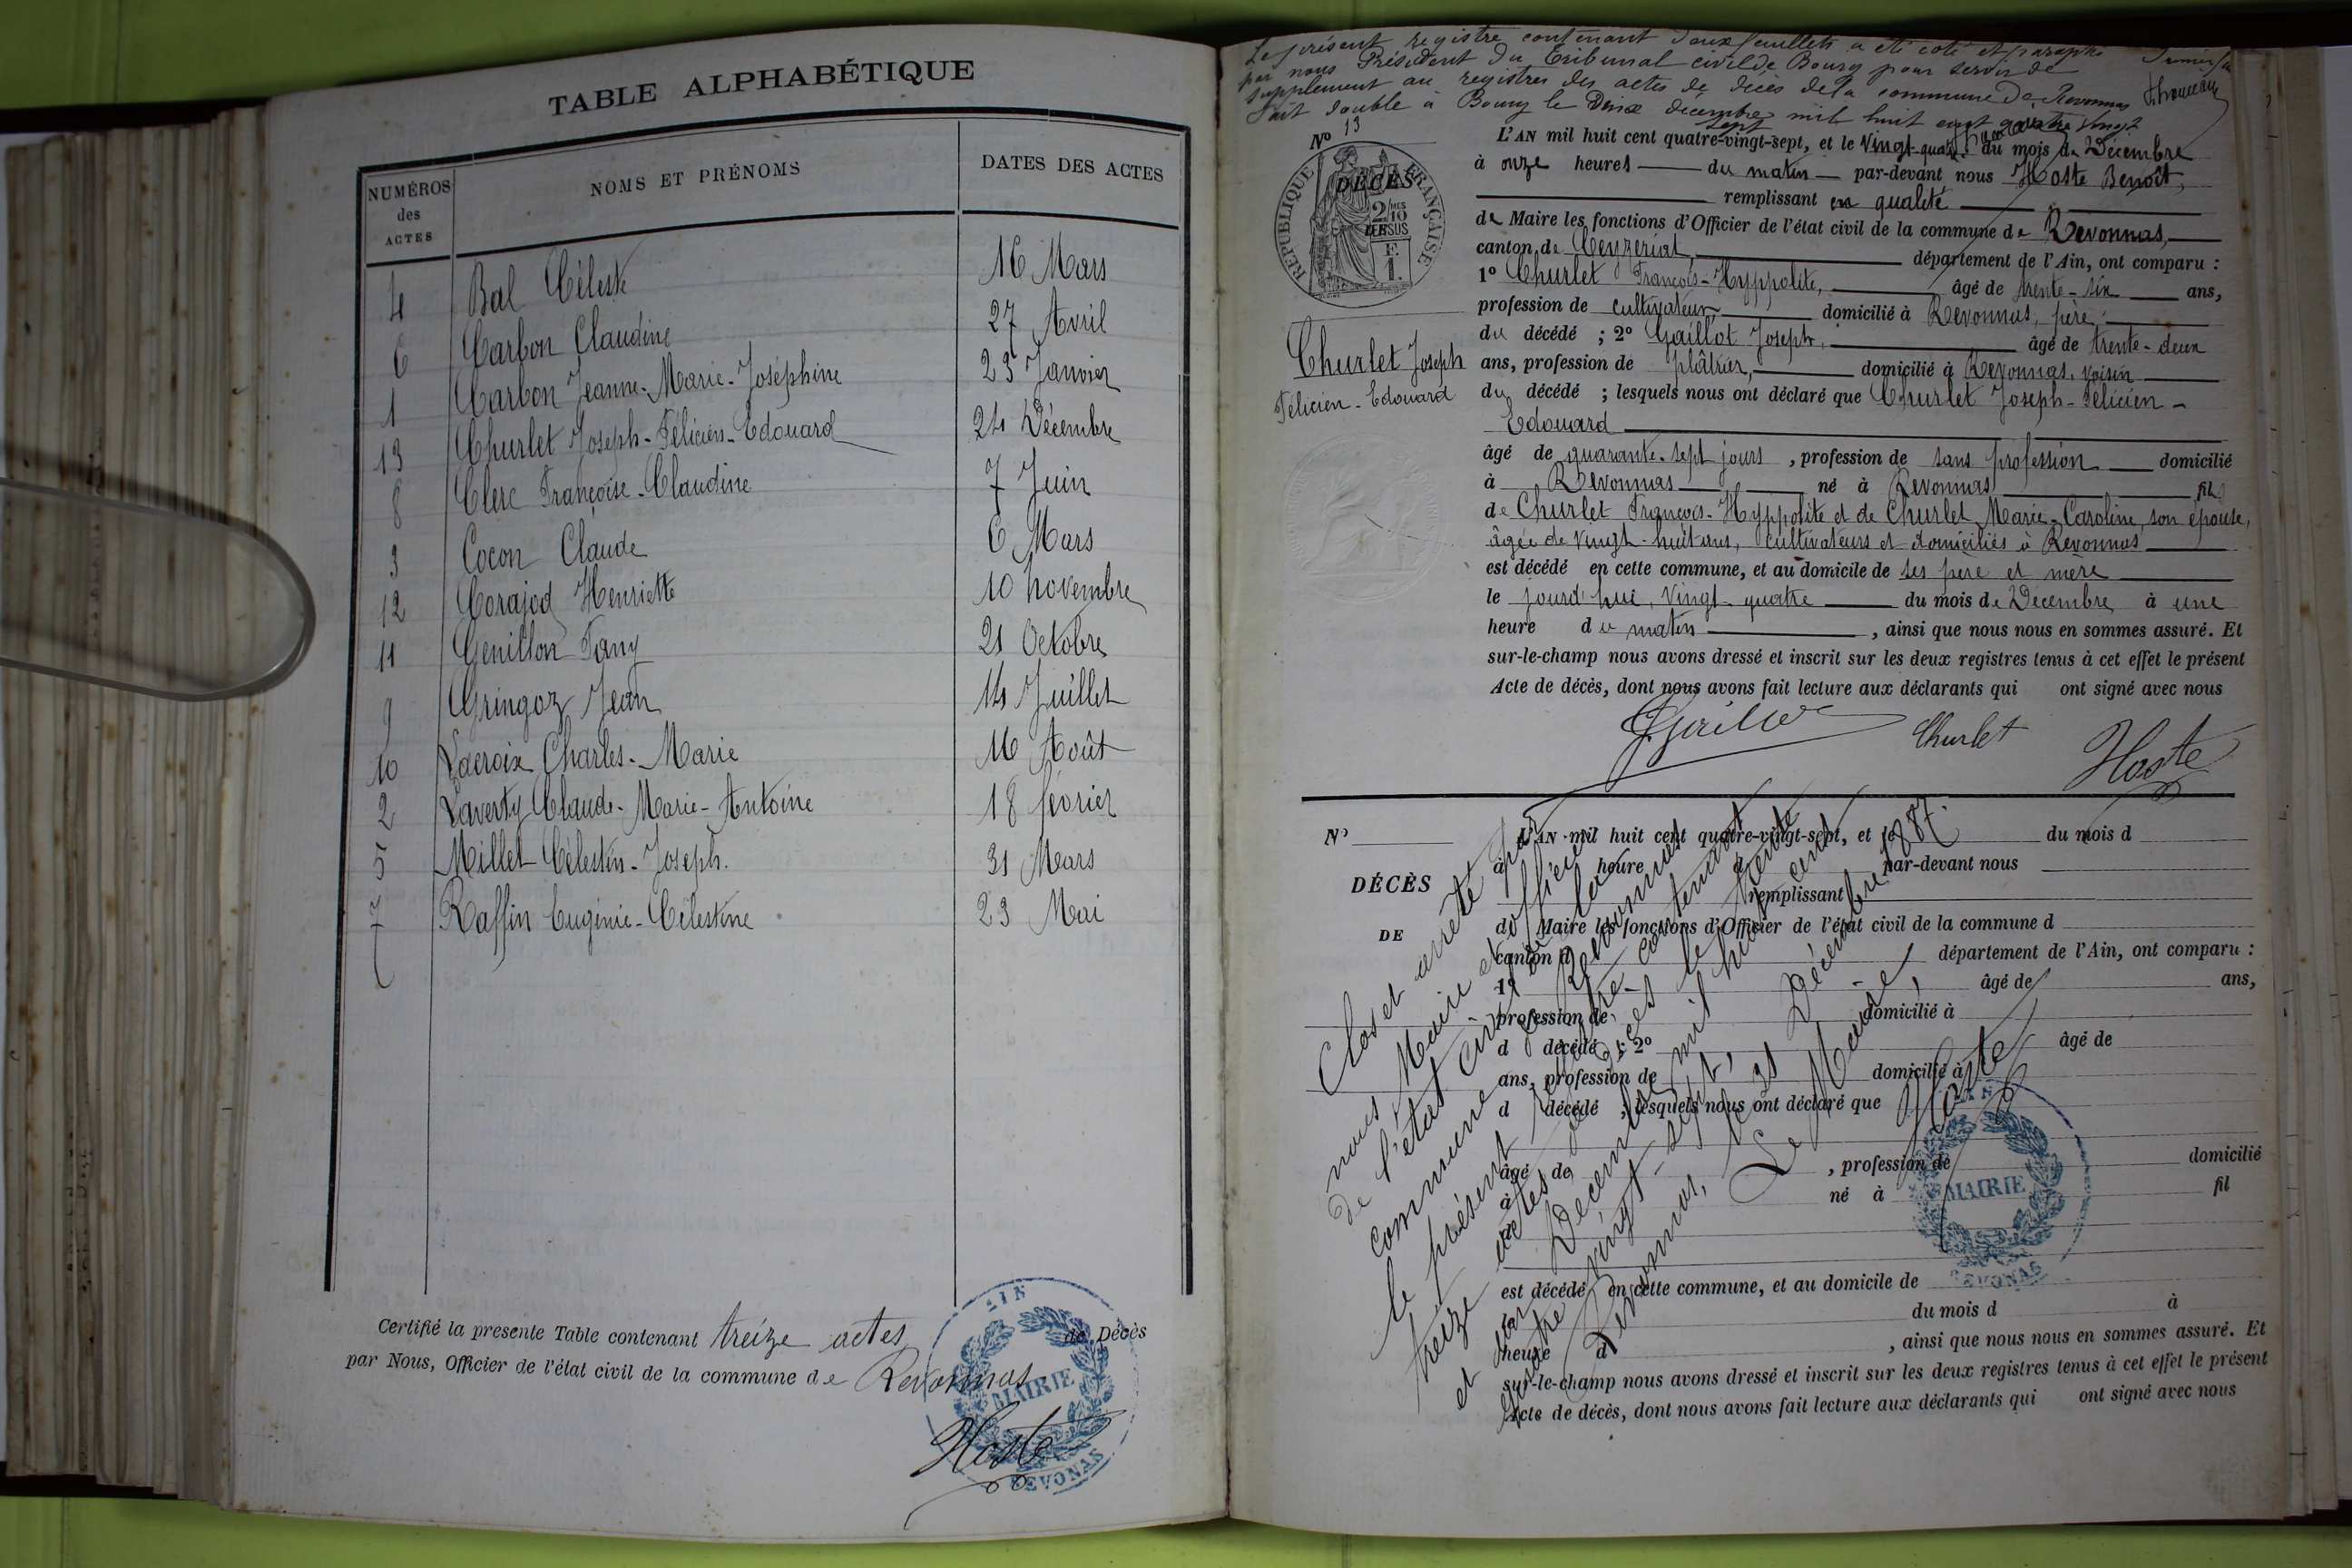 TABLE ALPHABÉTIQUE
NUMÉROS des ACTES
NOMS ET PRÉNOMS
DATES DES ACTES
4 Bal Céleste 16 Mars
6 Carbon Claudine 27 Avril
1 Carbon Jeanne-Marie-Joséphine 23 Janvier
13 Churlet Joseph-Félicien-Edouard 24 Décembre
8 Clerc Françoise-Claudine 7 Juin
3 Cocon Claude 6 Mars
12 Corajod Henriette 10 Novembre
11 Genillon Fany 21 Octobre
9 Gringoz Jean 14 Juillet
10 Lacroix Charles-Marie 16 Août
2 Laverty Claude-Marie-Antoine 18 février
5 Millet Célestin-Joseph. 31 Mars
7 Raffin Eugénie-Célestine 23 Mai
Certifié la presente Table contenant treize actes de Décès
par Nous, Officier de l'état civil de la commune de Revonnas
AIN
MAIRIE
REVONAS
Hoste
Le présent registre contenant deux feuillets a été coté et paraphé
par nous Président du Tribunal civil de Bourg pour servir de
supplement au registres des actes de décès de la commune de Revonnas
Fait double à Bourg le douze decembre mil huit cent quatre vingt
sept
No 13
RÉPUBLIQUE FRANÇAISE
DÉCÈS
2/10 MES
EN SUS
F.
1.
Churlet Joseph
Félicien-Edouard
L'AN mil huit cent quatre-vingt-sept, et le vingt-quatre du mois de Décembre
à onze heures du matin par-devant nous Hoste Benoît,
remplissant en qualité
de Maire les fonctions d'Officier de l'état civil de la commune de Revonnas,
canton de Ceyzeriat, département de l'Ain, ont comparu :
1o Churlet François-Hyppolite, âgé de trente-six ans,
profession de cultivateur domicilié à Revonnas, père
du décédé ; 2o Gaillot Joseph, âgé de trente-deux
ans, profession de plâtrier, domicilié à Revonnas, voisin
du décédé ; lesquels nous ont déclaré que Churlet Joseph-Félicien-
Edouard
âgé de quarante-sept jours , profession de sans profession domicilié
à Revonnas né à Revonnas fils
de Churlet François-Hyppolite et de Churlet Marie-Caroline, son épouse,
âgée de vingt-huit ans, cultivateurs et domiciliés à Revonnas
est décédé en cette commune, et au domicile de ses père et mère
le jourd'hui, vingt-quatre du mois de Décembre à une
heure du matin , ainsi que nous nous en sommes assuré. Et
sur-le-champ nous avons dressé et inscrit sur les deux registres tenus à cet effet le présent
Acte de décès, dont nous avons fait lecture aux déclarants qui ont signé avec nous
Churlet
Hoste
No
DÉCÈS
DE
L'AN mil huit cent quatre-vingt-sept, et le du mois d
à heure d par-devant nous
remplissant
d Maire les fonctions d'Officier de l'état civil de la commune d
canton d département de l'Ain, ont comparu :
1o âgé de ans,
profession de domicilié à
d décédé ; 2o âgé de
ans, profession de domicilié à
d décédé ; lesquels nous ont déclaré que
âgé de , profession de domicilié
à né à fil
de
est décédé en cette commune, et au domicile de
le du mois d à
heure d , ainsi que nous nous en sommes assuré. Et
sur-le-champ nous avons dressé et inscrit sur les deux registres tenus à cet effet le présent
Acte de décès, dont nous avons fait lecture aux déclarants qui ont signé avec nous
Clos et arrêté par
nous Maire et officier
de l'état civil de la
commune de Revonnas
le présent registre contenant
treize actes de décès le trente
et un Decembre mil huit cent
quatre vingt-sept,
Revonnas, le 31 Décembre 1887.
Le Maire,
Hoste
AIN
MAIRIE
REVONAS